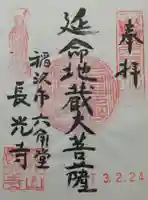 奉拝
延命地蔵大菩薩
稲沢市六角堂
長光寺
3.2.24